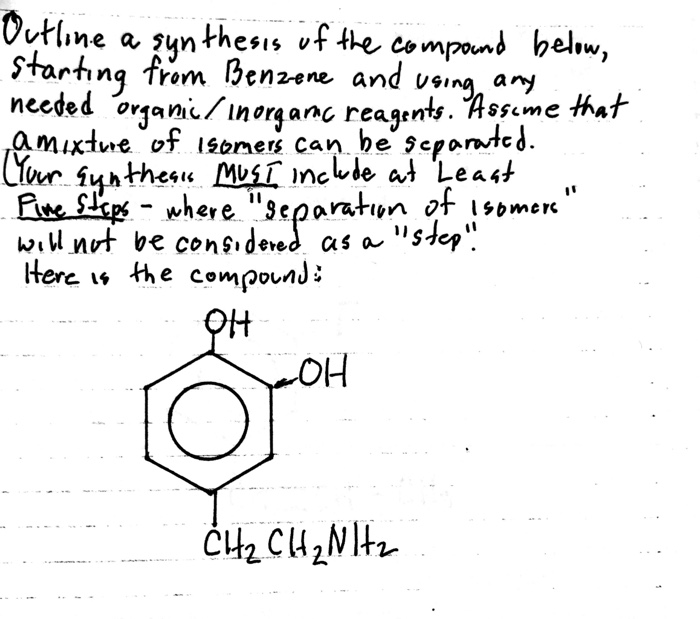 Outline a synthesis of the compound below,
starting from Benzene and using any
needed organic/inorganic reagents. Assume that
a mixture of isomers can be separated.
(Your synthesis MUST include at Least
Five Steps - where "separation of isomers"
will not be considered as a "step".
Here is the compound:
OH
OH
CH2CH2NH2